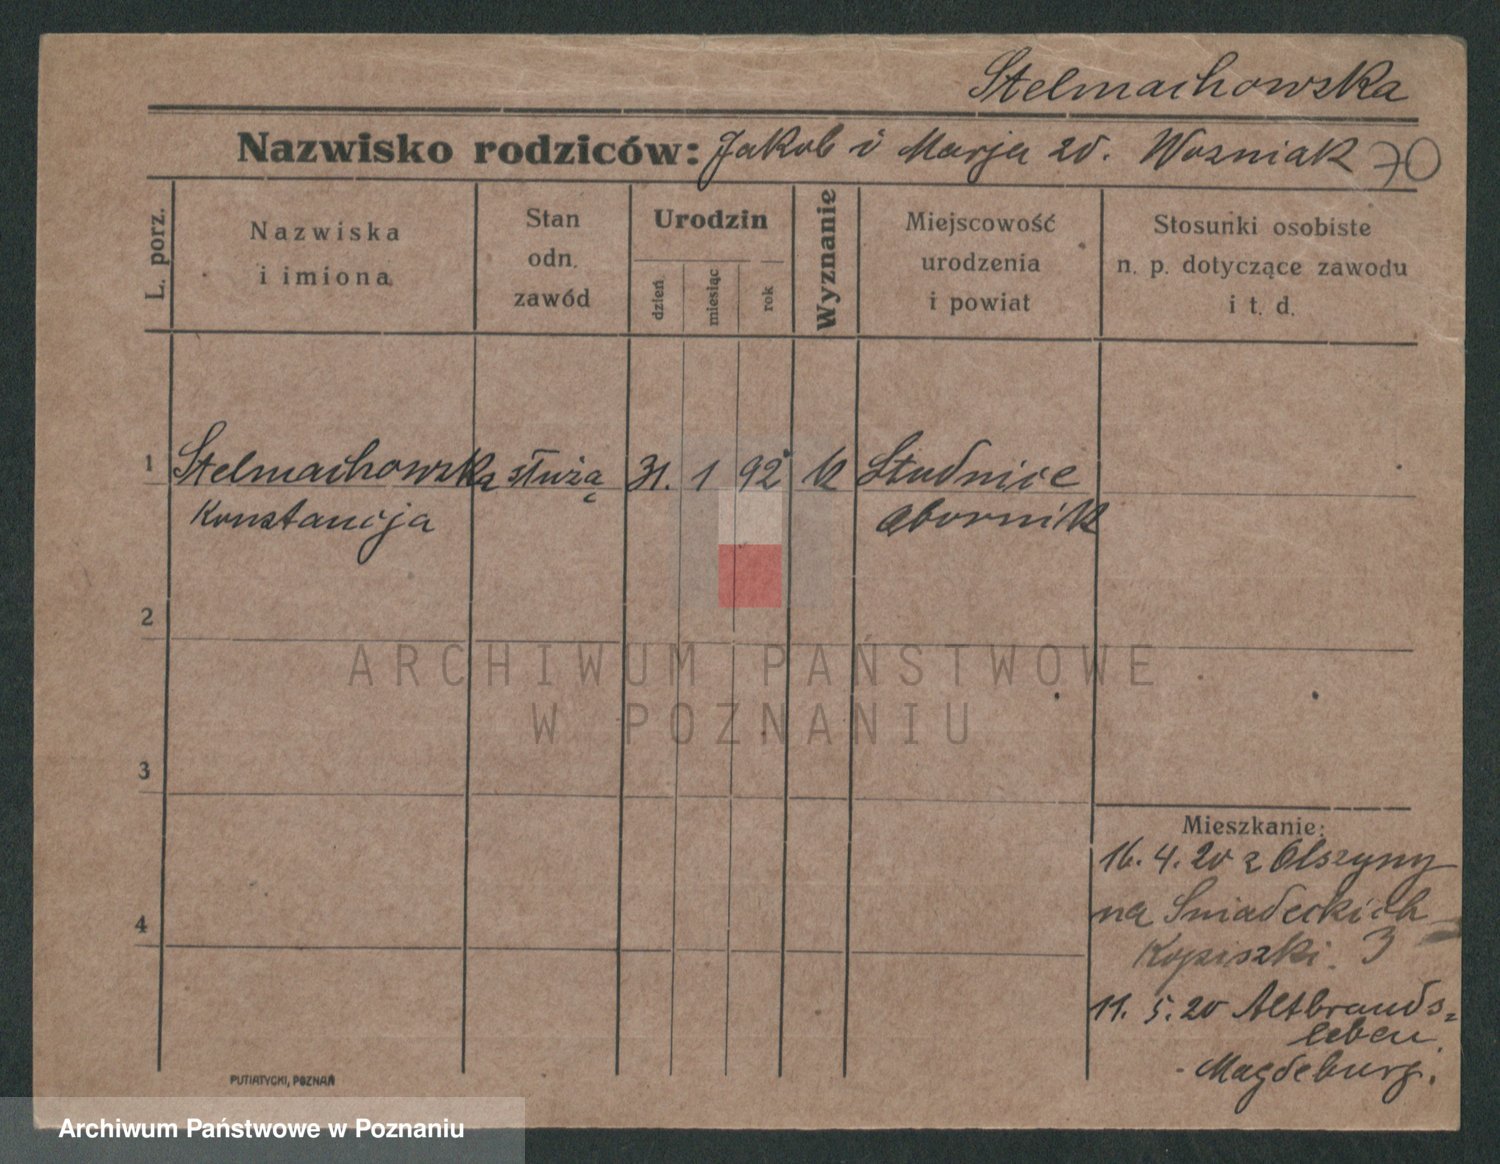 Stelmachowska
Nazwisko rodziców: Jakob i Marja zd. Wozniak 70
L. porz.
Nazwiska
i imiona
Stan
odn.
zawód
Urodzin
dzień
miesiąc
rok
Wyznanie
Miejscowość
urodzenia
i powiat
Stosunki osobiste
n. p. dotyczące zawodu
i t. d.
1 Stelmachowska służą 31. 1 92 k Studnice
Konstancja Obornik
2
ARCHIWUM PAŃSTWOWE
W POZNANIU
3
Mieszkanie:
16. 4. 20 z Olszyny
4
na Sniadeckich
3
11. 5. 20 Altbrands=
leben.
- Magdeburg.
PUTIATYCKI, POZNAŃ
Archiwum Państwowe w Poznaniu